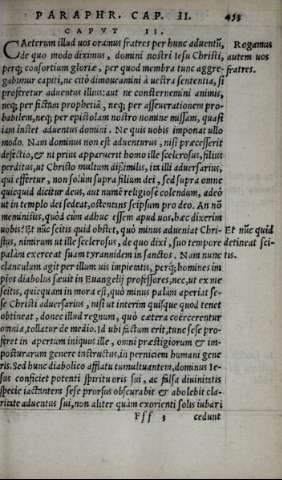 PARAPHR. CAP. II. 453
CAPVT II.
CAeterum illud uos oramus fratres per hunc aduentũ, Rogamus
de quo modo diximus, domini nostri Iesu Christi, autem uos
perq́; consortium gloriæ, per quod membra tunc aggre- fratres.
gabimur capiti, ne citò dimoueamini à uestra sententia, si
proferetur aduentus illius: aut ne consternemini animis,
neq; per fictam prophetiã, neq; per asseuerationem pro-
babilem, neq; per epistolam nostro nomine missam, quasi
iam instet aduentus domini. Ne quis uobis imponat ullo
modo. Nam dominus non est aduenturus, nisi præcesserit
defectio, & ni prius apparuerit homo ille scelerosus, filius
perditus, ut Christo multum dissimilis, ita illi aduersarius,
qui efferetur, non solùm supra filium dei, sed supra omne
quicquid dicitur deus, aut numẽ religiosè colendum, adeò
ut in templo dei sedeat, ostentans seipsum pro deo. An nõ
meministis, quòd cùm adhuc essem apud uos, hæc dixerim
uobis? Et nũc scitis quid obstet, quò minus adueniat Chri- Et nũc quid
stus, nimirum ut ille scelerosus, de quo dixi, suo tempore detineat sci-
palàm exerceat suam tyrannidem in sanctos. Nam nunc tis.
clanculum agit per illum uis impietatis, perq́; homines im
pios diabolus sæuit in Euangelij professores, nec, ut ex me
scitis, quicquam in mora est, quò minus palàm aperiat se-
se Christi aduersarius, nisi ut interim quisque quod tenet
obtineat, donec illud regnum, quò cætera coërcerentur
omnia, tollatur de medio. Id ubi factum erit, tunc sese pro-
feret in apertum iniquus ille, omni præstigiorum & im-
posturarum genere instructus, in perniciem humani gene
ris. Sed hunc diabolico afflatu tumultuantem, dominus Ie-
sus conficiet potenti spiritu oris sui, ac falsa diuinitatis
specie iactantem sese prorsus obscurabit & abolebit cla-
ritate aduentus sui, non aliter quàm exorienti solis iubari
Fff 3 cedunt